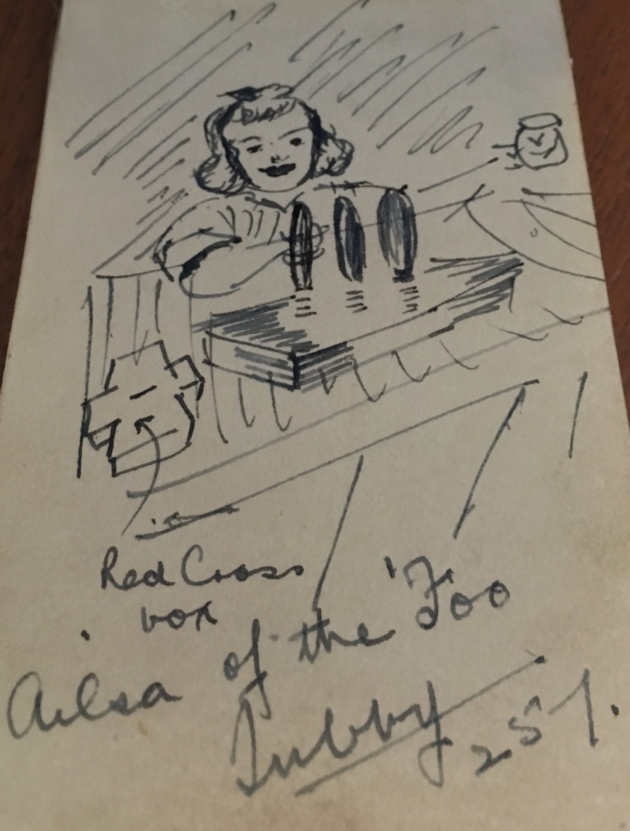 Red Cross
box
Ailsa of the 'Foo
Tubby 25/.